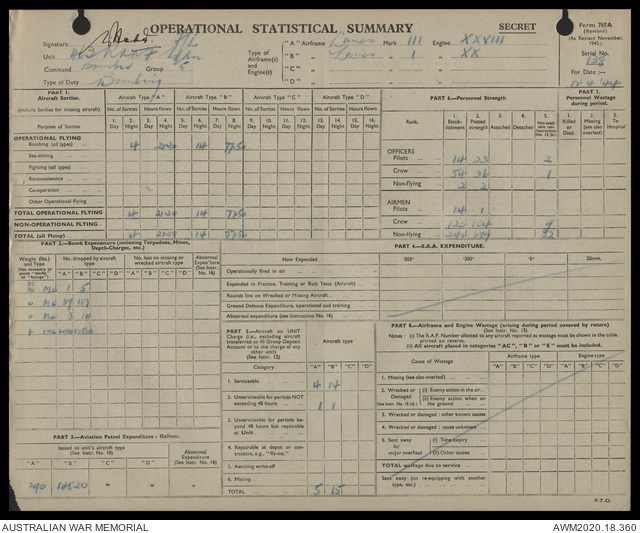 OPERATIONAL STATISTICAL SUMMARY
SECRET
Form 765A
(Revised)
Signature
Unit 463 RAAF
Command Bomber Group 5
Type of Duty Bombing
Type of Airframe(s) and Engine(s)
"A" Airframe Lancs Mark III Engine XXVIII
"B" Lancs 1 XX
"C"
"D"
Serial No.:
For Date :—
PART 1.
Aircraft Sorties.
(Include Sorties for missing aircraft)
Aircraft Type "A" Aircraft Type "B" Aircraft Type "C" Aircraft Type "D"
No. of Sorties Hours flown No. of Sorties Hours flown No. of Sorties Hours flown No. of Sorties Hours flown
Purpose of Sorties
1. Day 2. Night 3. Day 4. Night 5. Day 6. Night 7. Day 8. Night 9. Day 10. Night 11. Day 12. Night 13. Day 14. Night 15. Day 16. Night
OPERATIONAL FLYING
Bombing (all types) 4 21·20 14 77·50
Sea-mining
Fighting (all types)
Reconnaissance
Co-operation
Other Operational Flying
TOTAL OPERATIONAL FLYING 4 21·20 14 77·50
NON-OPERATIONAL FLYING
TOTAL (all Flying) 4 21·20 14 77·50
PART 6.—Personnel Strength
PART 7.
Personnel Wastage during period.
Rank.
1. Establishment 2. Posted strength 3. Attached 4. Detached
1. Killed or Died. 2. Missing (see also overleaf) 3. To Hospital
OFFICERS
Pilots 14 23 2
Crew 54 36 1
Non-flying 2 2
AIRMEN
Pilots 14 1
Crew
Non-flying
PART 2.—Bomb Expenditure (including Torpedoes, Mines, Depth-Charges, etc.)
Weight (lbs.) and Type
No. dropped by aircraft type
No. lost on missing or wrecked aircraft type
Abnormal Expenditure (See Instr. No. 16)
"A" "B" "C" "D" "A" "B" "C" "D"
PART 4.—S.A.A. EXPENDITURE.
How Expended
·303" ·300" ·5" 20mm.
Operationally fired in air
Expended in Practice, Training or Butt Tests (Aircraft)
Rounds lost on Wrecked or Missing Aircraft
Ground Defence Expenditure, operational and training
Abnormal expenditure (see Instruction No. 16)
PART 5.—Aircraft on UNIT Charge (i.e., excluding aircraft transferred to 43 Group Deposit Account or to the charge of any other unit) (See Instr. 12)
Aircraft type
Category "A" "B" "C" "D"
1. Serviceable 4 14
2. Unserviceable for periods NOT exceeding 48 hours 1 1
3. Unserviceable for periods beyond 48 hours but repairable at Unit
4. Repairable at depot or contractors, e.g., "fly-ins."
5. Awaiting write-off
6. Missing
TOTAL 5 15
PART 8.—Airframe and Engine Wastage (arising during period covered by return)
(See Instr. No. 15)
Notes : (i) The R.A.F. Number allotted to any aircraft reported as wastage must be shown in the table printed on reverse.
(ii) All aircraft placed in categories "AC", "B" or "E" must be included.
Cause of Wastage
Airframe type Engine type
"A" "B" "C" "D" "A" "B" "C" "D"
1. Missing (see also overleaf)
2. Wrecked or Damaged (See Instr. No. 15 (v))
(i) Enemy action in the air
(ii) Enemy action when on the ground
3. Wrecked or damaged : other known causes
4. Wrecked or damaged : cause unknown
5. Sent away for major overhaul
(i) Time expiry
(ii) Other causes
TOTAL wastage due to service
Sent away (no re-equipping with another type, etc.)
PART 3.—Aviation Petrol Expenditure : Gallons.
Issued to unit's aircraft type (See Instr. No. 10)
Abnormal Expenditure (See Instr. No. 16)
"A" "B" "C" "D"
P.T.O.
AUSTRALIAN WAR MEMORIAL
AWM2020.18.360